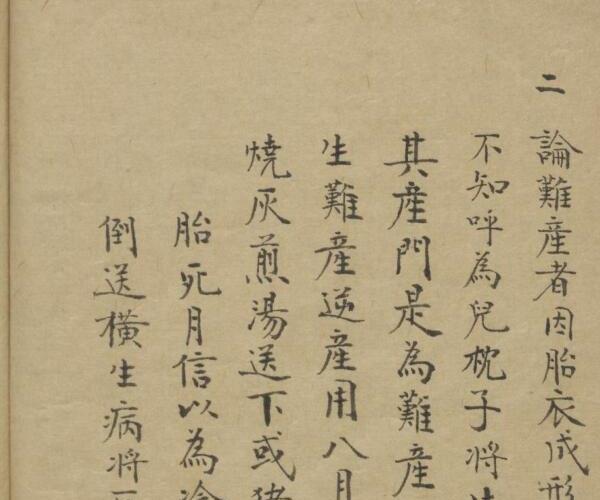 二
論難產者因胎衣成形
不知呼為兒枕子將
其産門是為難産
生難産逆産用八月
燒灰煎湯送下或猪
胎死月信以為
倒送橫生病將